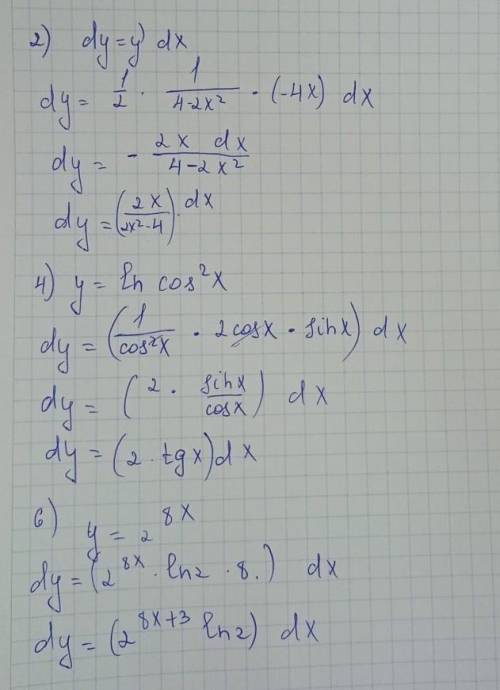 2) dy = y' dx
dy = 1/2 · 1/(4-2x²) · (-4x) dx
dy = - (2x dx)/(4-2x²)
dy = (2x/(2x²-4)) · dx
4) y = ln cos²x
dy = (1/(cos²x) · 2cosx · sinx) dx
dy = (2 · sinx/cosx) dx
dy = (2 · tgx)dx
6) y = 2^(8x)
dy = (2^(8x) · ln2 · 8.) dx
dy = (2^(8x+3) ln2) dx